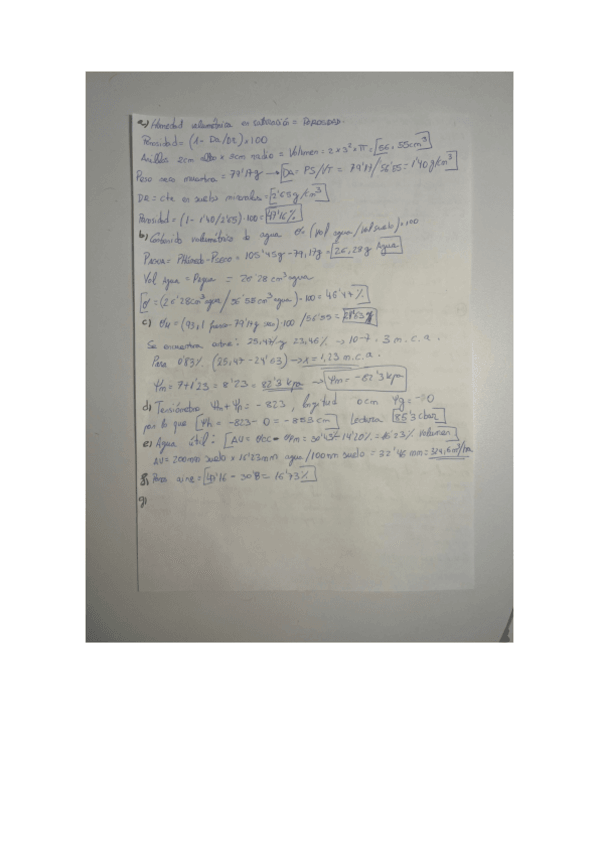 a) Humedad volumétrica en saturación = POROSIDAD.
Porosidad = (1 - Da/Dr) × 100
Anillas 2cm alto × 3cm radio = Volumen = 2 × 3² × π = 56,55cm³
Peso seco muestra = 79'17g → Da = PS/VT = 79'17/56'55 = 1'40g/cm³
DR = cte en suelos minerales = 2'65g/cm³
Porosidad = (1 - 1'40/2'65)·100 = 47'16%
b) Contenido volumétrico de agua (vol agua/vol suelo) × 100
PAGUA = PHúmedo - PSECO = 105'45g - 79,17g = 26,28g Agua
Vol Agua = PAgua = 26'28 cm³ agua
= (26'28cm³ agua / 56'55 cm³ agua)·100 = 46'47%
c) 79'17g seco)·100 / 56'55 =
Se encuentra entre: 25,47 y 23,46% → 10-7 = 3 m.c.a.
Para 0'83% (25,47 - 24'63) → x = 1,23 m.c.a.
Ψm = 7+1'23 = 8'23 = 82'3 kpa → Ψm = -82'3 kpa
d) Tensiómetro = -823, longitud 0cm Ψg = 0
por lo que = -823 - 0 = Lectura cbar
e) Agua útil: = 16'23% volumen
AU = 200mm suelo × 16'23mm agua/100mm suelo = 32'46 mm = 324,6m³/ha
f) Poros aire = 16'73%
g)